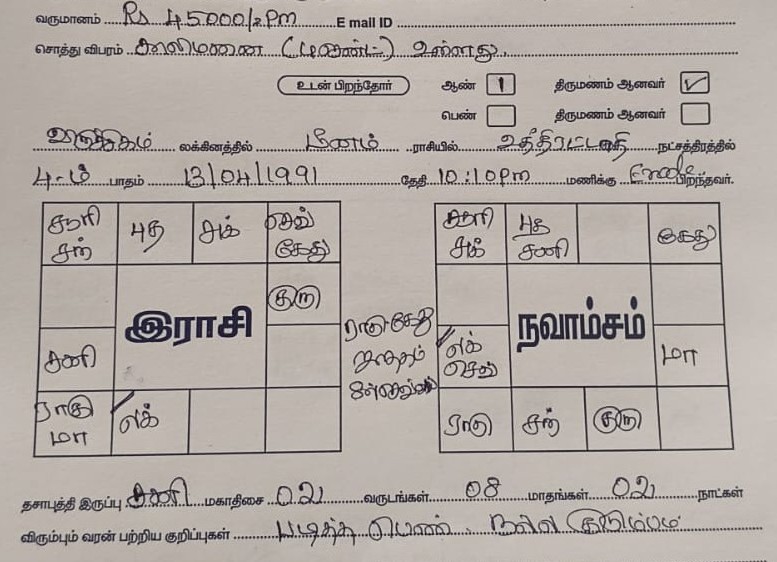 வருமானம் Rs 45000/2 Pm E mail ID
சொத்து விபரம் காலிமனை உள்ளது.
உடன் பிறந்தோர் ஆண் 1 திருமணம் ஆனவர் ✓
பெண் திருமணம் ஆனவர்
விருச்சிகம் லக்கினத்தில் மீனம் ராசியில் உத்திரட்டாதி நட்சத்திரத்தில்
4-ம் பாதம் 13/04/1991 தேதி 10:10pm மணிக்கு Erode பிறந்தவர்.
சூரி சந் புத சுக் செவ் கேது
சூரி சுக் புத சனி கேது
குரு
இராசி
நவாம்சம்
ராகு கேது ஜாதகம்
சனி
லக் செவ் மா
ராகு மா லக்
ராகு சந் குரு
தசாபுத்தி இருப்பு சனி மகாதிசை 02 வருடங்கள் 08 மாதங்கள் 02 நாட்கள்
விரும்பும் வரன் பற்றிய குறிப்புகள் படித்த பெண். நல்ல குடும்பம்